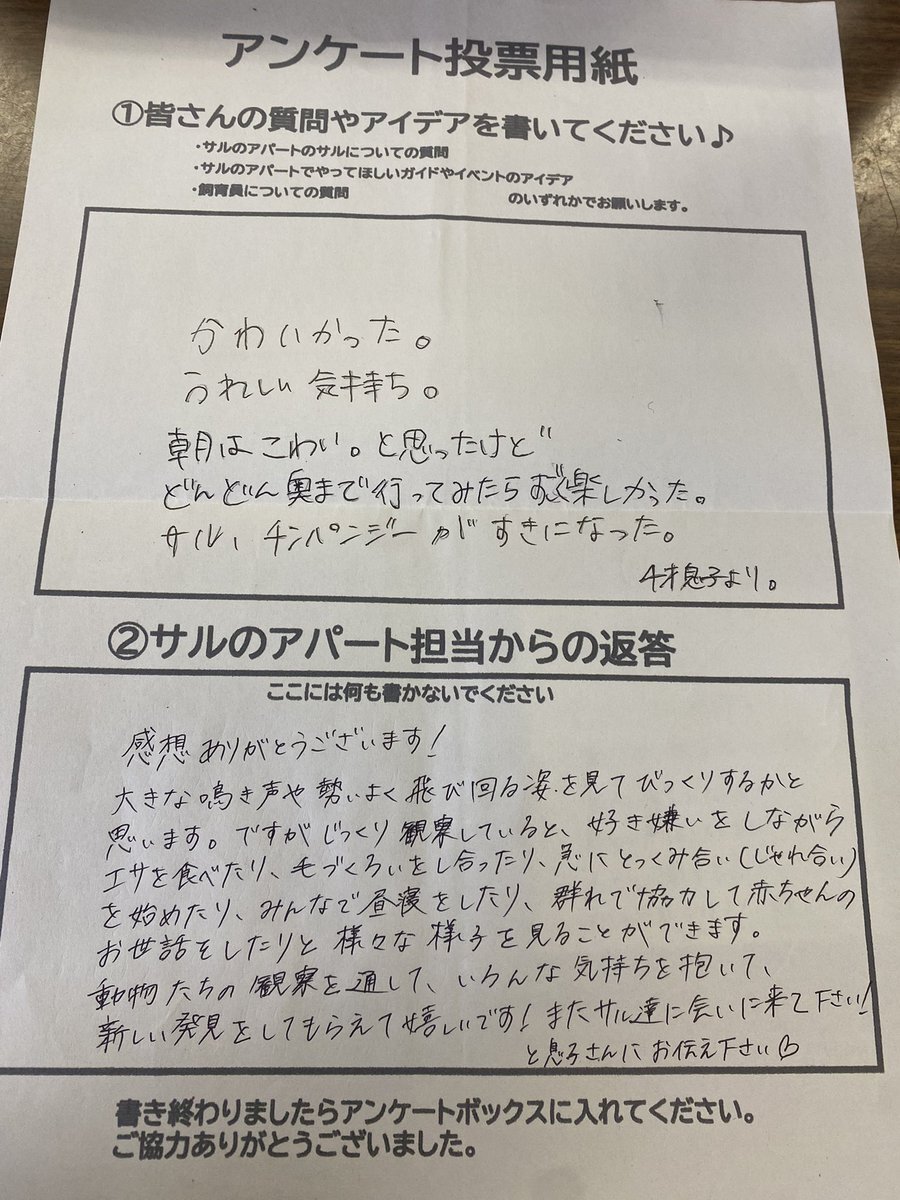 アンケート投票用紙
①皆さんの質問やアイデアを書いてください♪
・サルのアパートのサルについての質問
・サルのアパートでやってほしいガイドやイベントのアイデア
・飼育員についての質問
のいずれかでお願いします。
かわいかった。
うれしい気持ち。
朝はこわい。と思ったけど
どんどん奥まで行ってみたら楽しかった。
サル、チンパンジーがすきになった。
4才息子より。
②サルのアパート担当からの返答
ここには何も書かないでください
感想ありがとうございます!
大きな鳴き声や勢いよく飛び回る姿を見てびっくりするかと
思います。ですがじっくり観察していると、好き嫌いをしながら
エサを食べたり、毛づくろいをし合ったり、急にとっくみ合い(じゃれ合い)
を始めたり、みんなで昼寝をしたり、群れで協力して赤ちゃんの
お世話をしたりと様々な様子を見ることができます。
動物たちの観察を通して、いろんな気持ちを抱いて、
新しい発見をしてもらえて嬉しいです!またサル達に会いに来て下さい!
と息子さんにお伝え下さい♡
書き終わりましたらアンケートボックスに入れてください。
ご協力ありがとうございました。